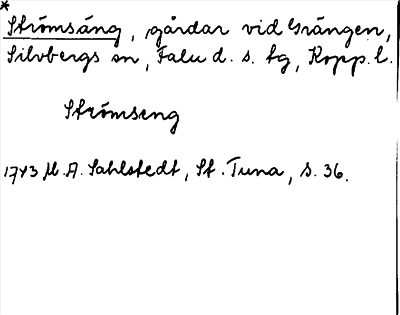 *
Strömsäng, gårdar vid Grängen,
Silvbergs sn, Falu d. s. tg, Kopp. l.
Strömseng
1743 M. A. Sahlstedt, St. Tuna, s. 36.